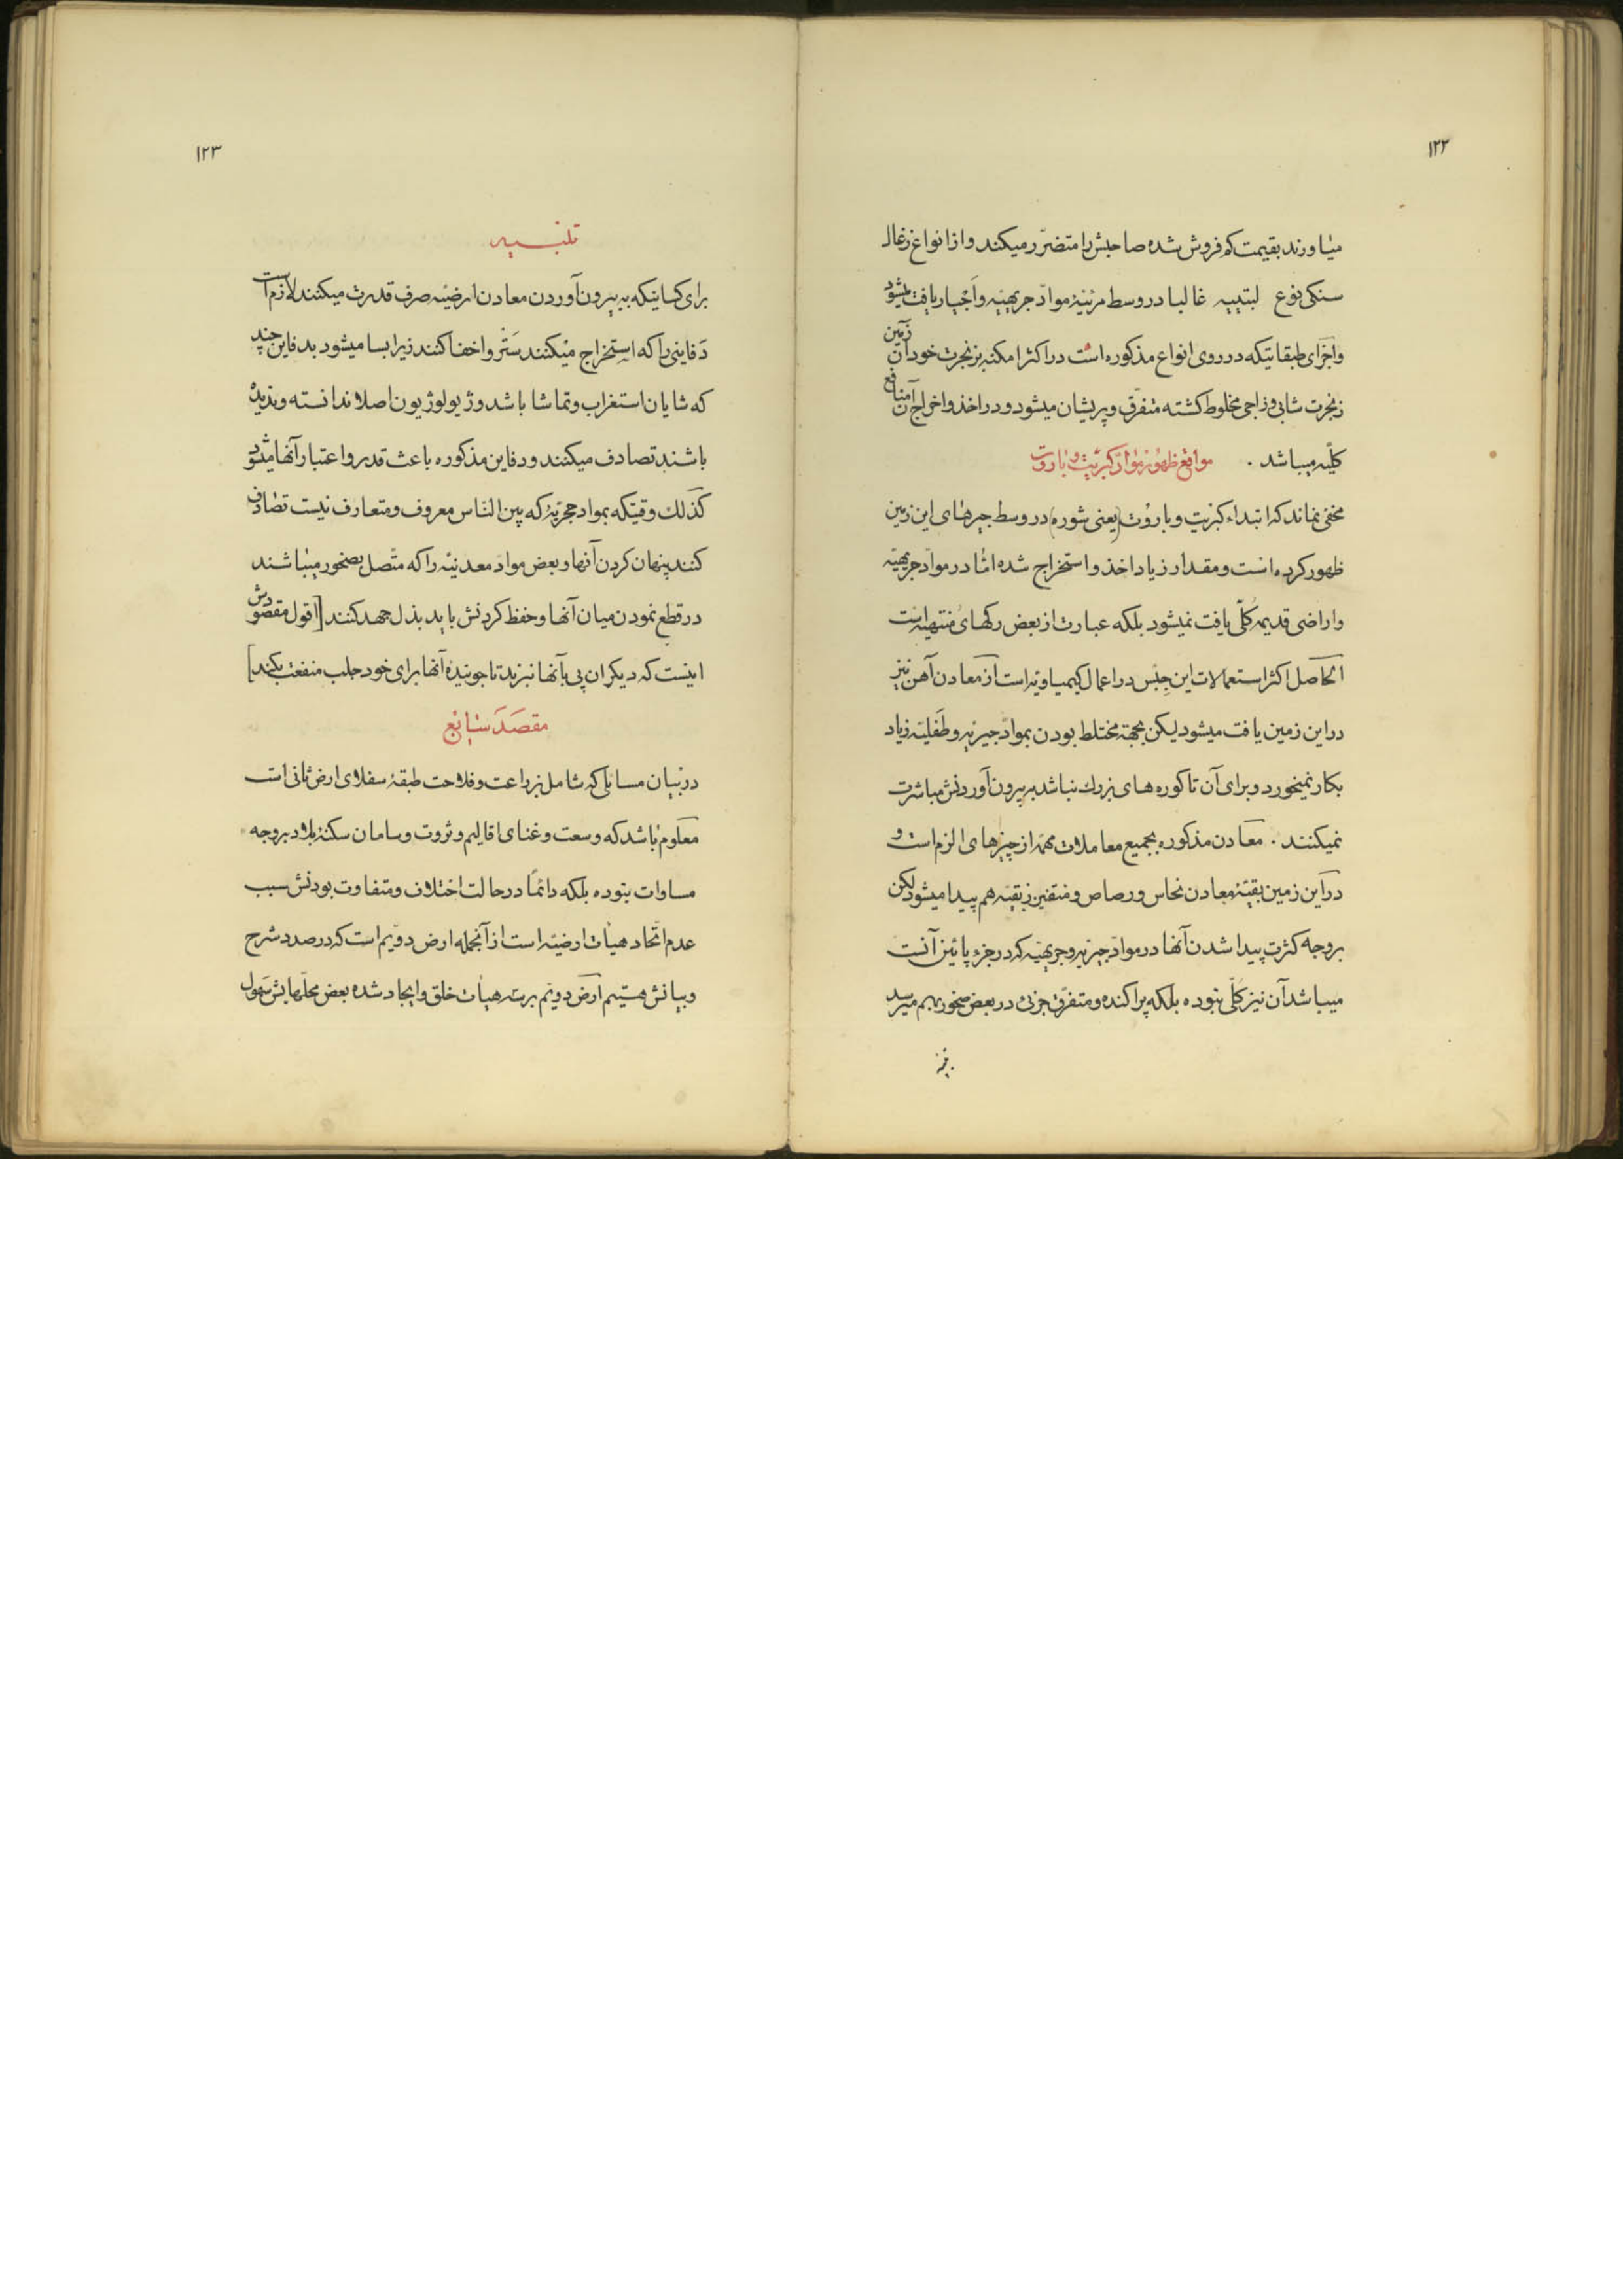 ۱۲۲
میاورند بقیمت کم فروش شده صاحبش را متضرّر میکند و از انواع زغال
سنکی نوع لبتییه غالبا در وسط مرئیهٔ موادّ جریهیّه و اجیار یافت میشود
و اجزای طبقاتیکه در روی انواع مذکوره است در اکثر امکنه بزنجرت خود آن زمین
زنجرت شابی و زاجی مخلوط کشته متفرّق و پریشان میشود و در اخذ و اخراج آن منافع
کلیّه میباشد . مواقع ظهور موادّ کبریت و باروت
مخفی نماند که ابتداء کبریت و باروت (یعنی شوره) در وسط جیرهای این زمین
ظهور کرده است و مقدار زیاد اخذ و استخراج شده امّا در موادّ جریهیّه
و اراضی قدیمه کلّی یافت نمیشود بلکه عبارت از بعض رکهای منتهیه است
الحاصل اکثر استعمالات این جنس در اعمال کیمیاویّه است از معادن آهن نیز
در این زمین یافت میشود لیکن بجهة مختلط بودن بموادّ جیریّه و طفلیّه زیاد
بکار نمیخورد و برای آن تا کوره های بزرك نباشد ببیرون آوردنش مباشرت
نمیکنند . معادن مذکوره بجمیع معاملات مهمّه از چیزهای الزم است و
در این زمین بقیّهٔ معادن نحاس و رصاص و منتفین زیقیّه هم پیدا میشود لکن
بروجه کثرت پیدا شدن آنها در موادّ جیریّه و جریهیّه که در جزء پائین آنست
میباشد آن نیز کلّی نبوده بلکه پراکنده و متفرّق جزئی در بعض صخور بهم میرسد
۱۲۳
تنبیه
برای کسانیکه به بیرون آوردن معادن ارضیّه صرف قدرت میکنند لازم است
دفاینی را که استخراج میکنند ستر و اخفا کنند زیرا بسا میشود بدفاین چند
که شایان استغراب و تماشا باشد و ژیولوژیون اصلا ندانسته و ندیده
باشند تصادف میکنند و دفاین مذکوره باعث قدر و اعتبار آنها میشود
کذلك وقتیکه بمواد حجریّه که بین الناس معروف و متعارف نیست تصادف
کنند پنهان کردن آنها و بعض موادّ معدنیّه را که متّصل بصخور میباشند
در قطع نمودن میان آنها و حفظ کردنش باید بذل جهد کنند [اقول مقصودش
اینست که دیکران پی بآنها نبرند تا جوینده آنها برای خود جلب منفعت بکند]
مقصد سابع
در بیان مسائلی که شامل بزراعت و فلاحت طبقهٔ سفلای ارض ثانی است
معلوم باشد که وسعت و غنای اقالیم و ثروت و سامان سکنهٔ بلاد بروجه
مساوات نبوده بلکه دائمًا در حالت اختلاف و متفاوت بودنش سبب
عدم اتّحاد هیئات ارضیّه است از آنجمله ارض دویّم است که در صدد شرح
و بیانش هستیم ارض دویّم برسه هیئات خلق و ایجاد شده بعض محلّهایش سهول